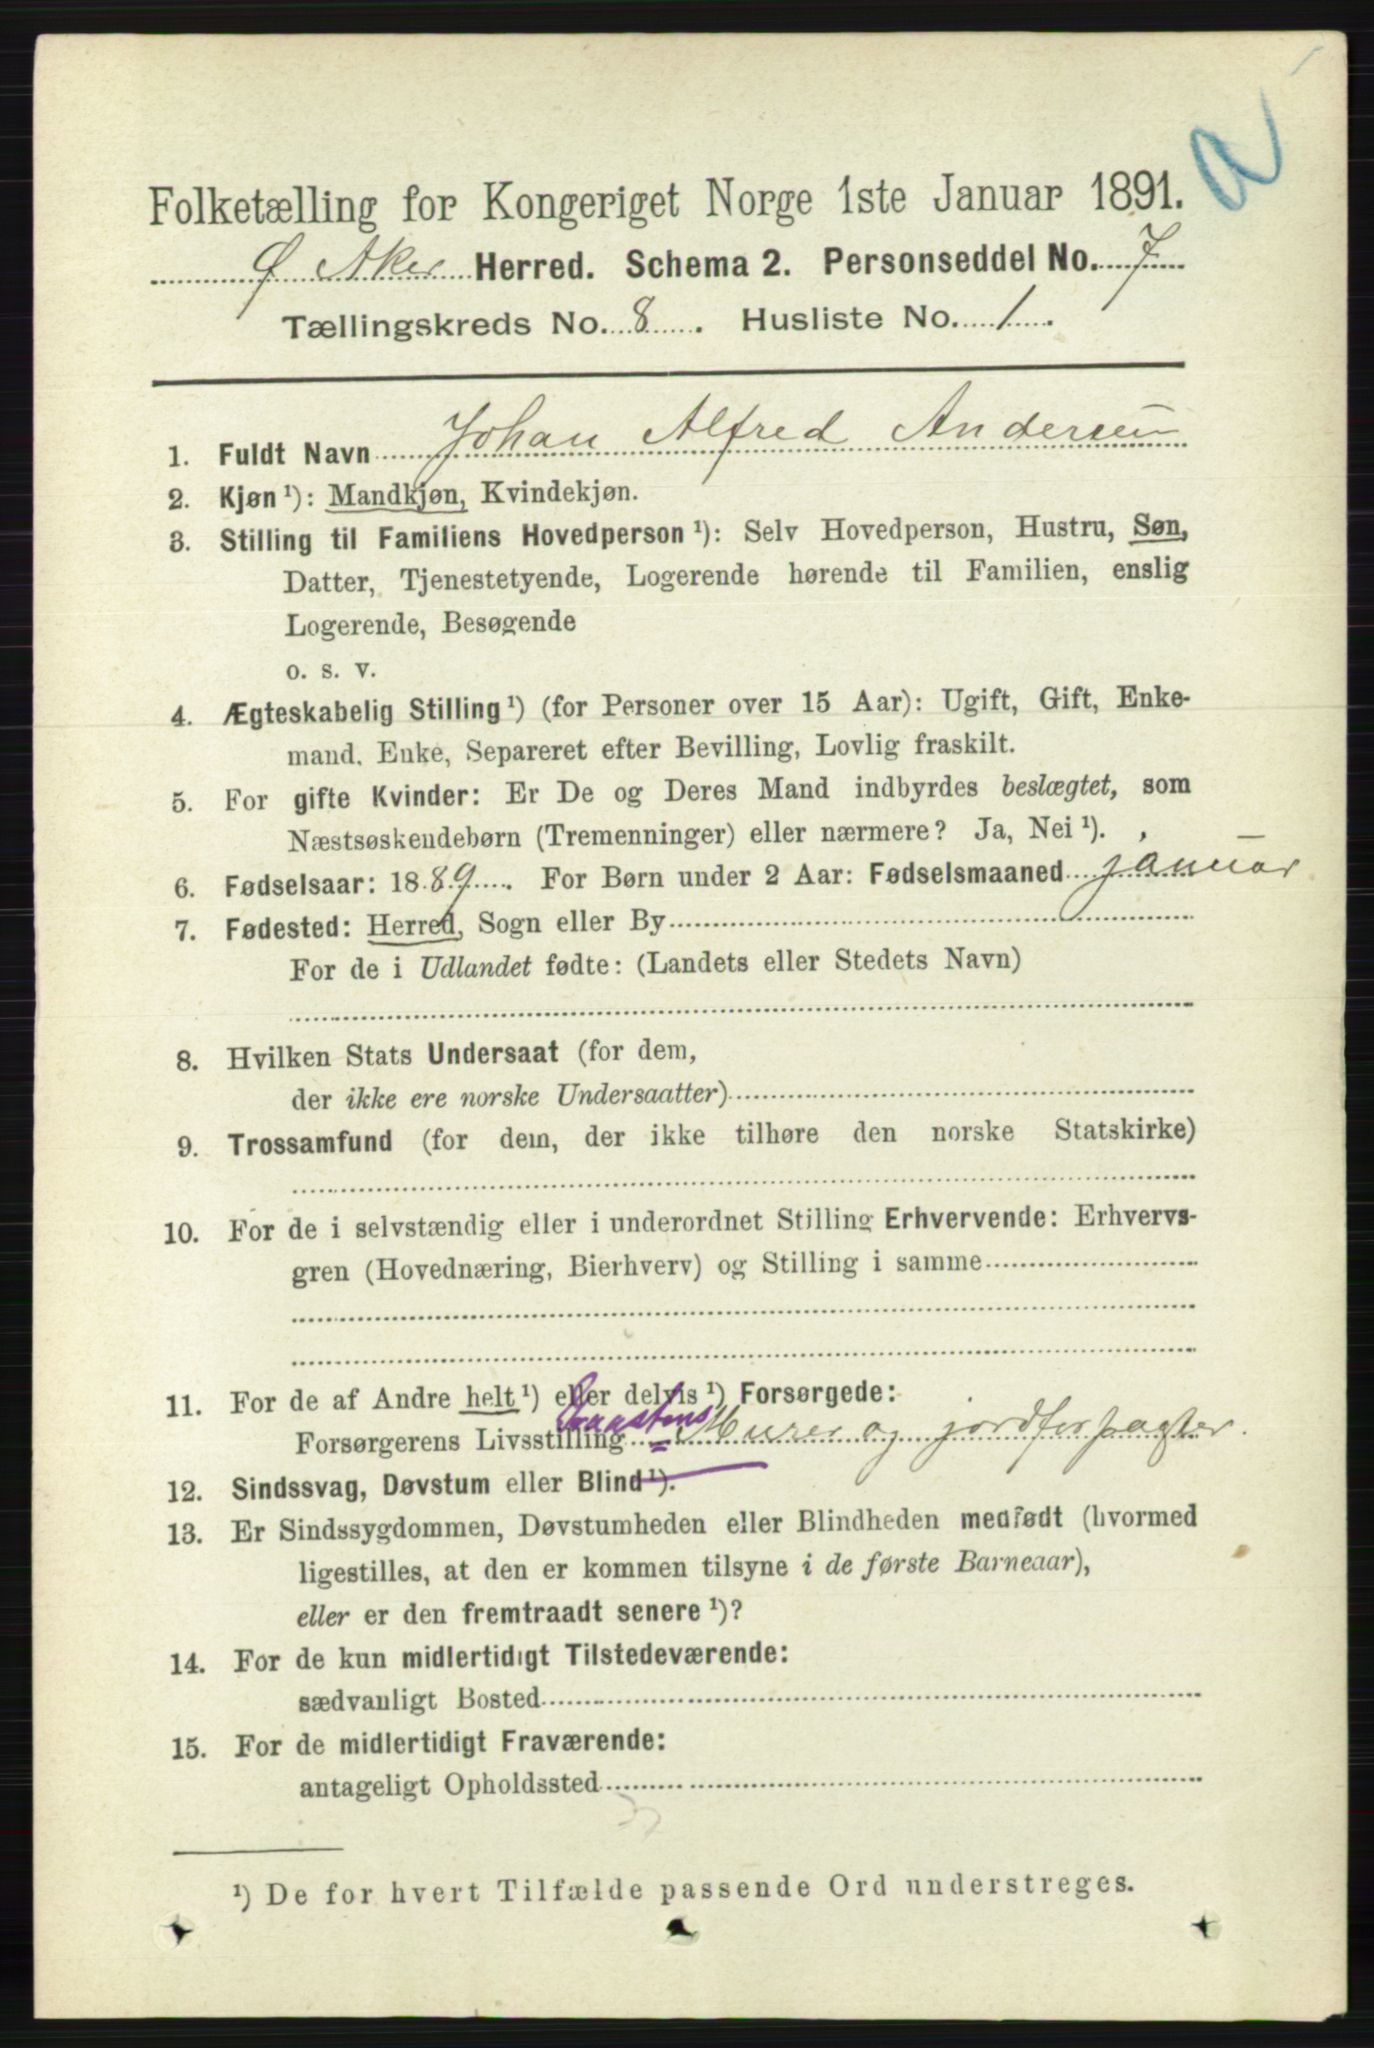 a
Folketælling for Kongeriget Norge 1ste Januar 1891.
Ø Aker Herred. Schema 2. Personseddel No. 7
Tællingskreds No. 8. Husliste No. 1.
1. Fuldt Navn Johan Alfred Andersen
2. Kjøn ¹): Mandkjøn, Kvindekjøn.
3. Stilling til Familiens Hovedperson ¹): Selv Hovedperson, Hustru, Søn,
Datter, Tjenestetyende, Logerende hørende til Familien, enslig
Logerende, Besøgende
o. s. v.
4. Ægteskabelig Stilling ¹) (for Personer over 15 Aar): Ugift, Gift, Enke-
mand, Enke, Separeret efter Bevilling, Lovlig fraskilt.
5. For gifte Kvinder: Er De og Deres Mand indbyrdes beslægtet, som
Næstsøskendebørn (Tremenninger) eller nærmere? Ja, Nei ¹).
6. Fødselsaar: 1889. For Børn under 2 Aar: Fødselsmaaned januar
7. Fødested: Herred, Sogn eller By
For de i Udlandet fødte: (Landets eller Stedets Navn)
8. Hvilken Stats Undersaat (for dem,
der ikke ere norske Undersaatter)
9. Trossamfund (for dem, der ikke tilhøre den norske Statskirke)
10. For de i selvstændig eller i underordnet Stilling Erhvervende: Erhvervs-
gren (Hovednæring, Bierhverv) og Stilling i samme
11. For de af Andre helt ¹) eller delvis ¹) Forsørgede:
Forsørgerens Livsstilling Murer og jordforpagter.
12. Sindssvag, Døvstum eller Blind ¹).
13. Er Sindssygdommen, Døvstumheden eller Blindheden medfødt (hvormed
ligestilles, at den er kommen tilsyne i de første Barneaar),
eller er den fremtraadt senere ¹)?
14. For de kun midlertidigt Tilstedeværende:
sædvanligt Bosted
15. For de midlertidigt Fraværende:
antageligt Opholdssted
¹) De for hvert Tilfælde passende Ord understreges.